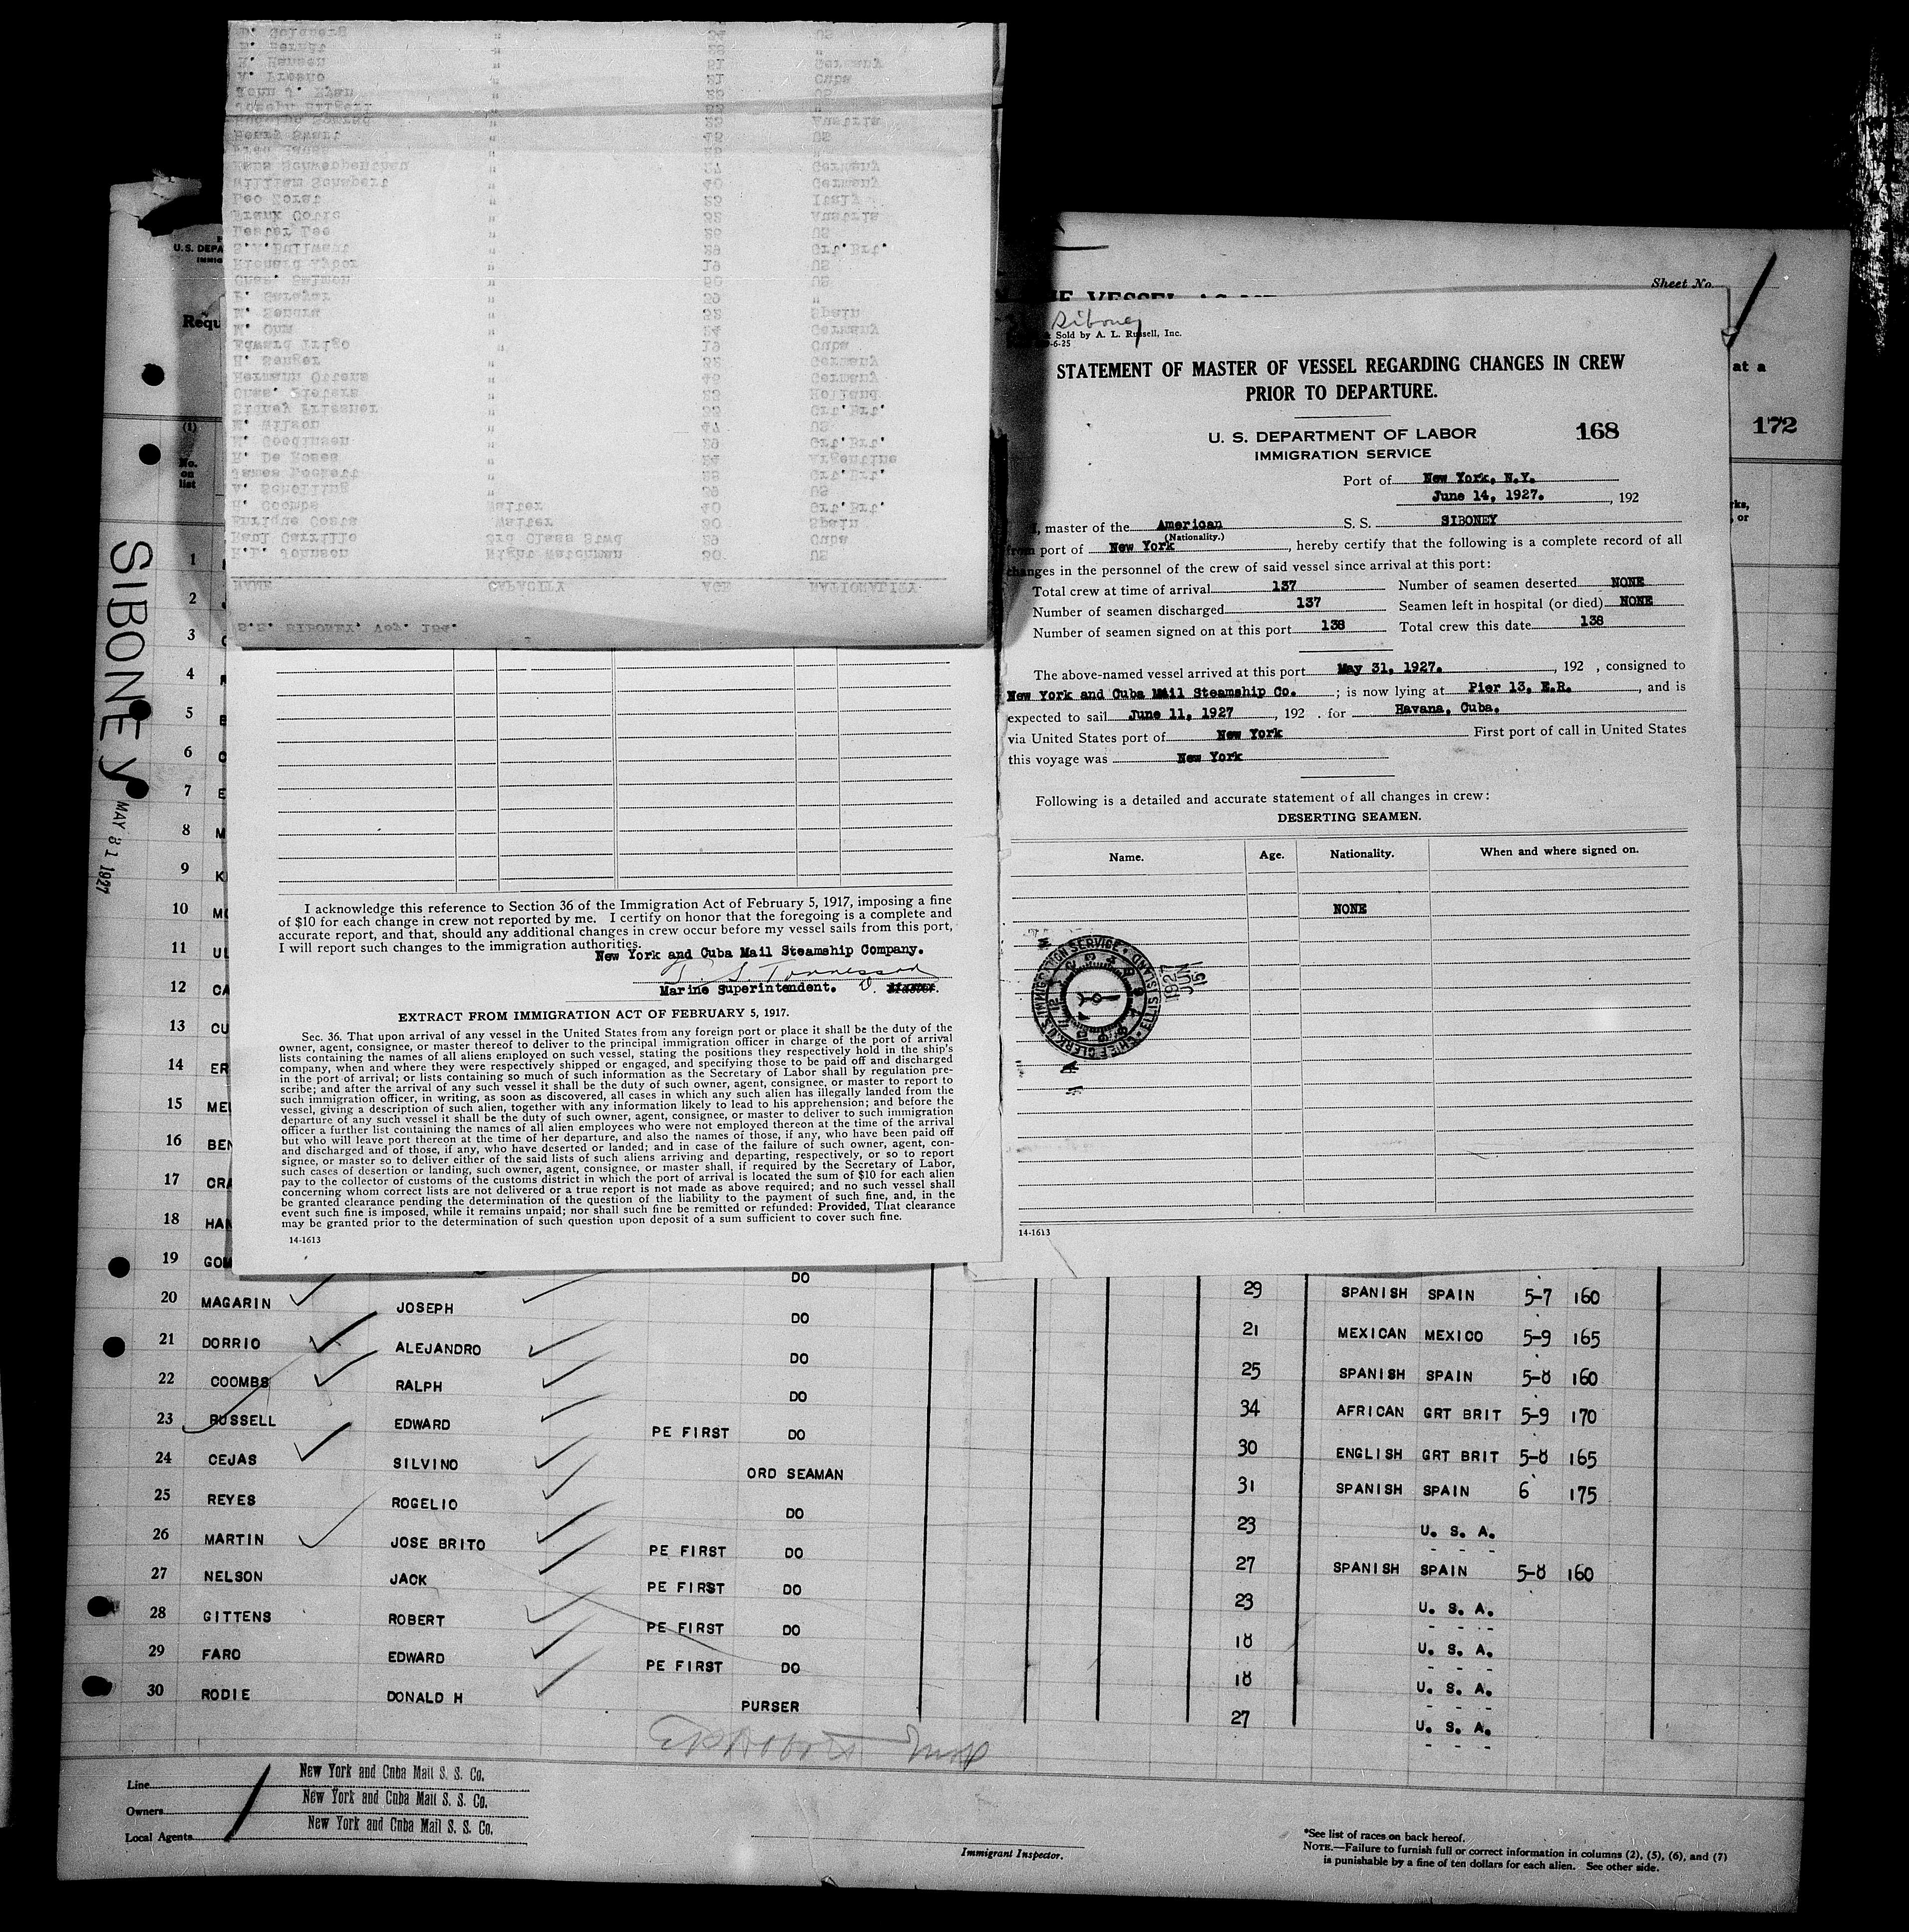 S.S. SIBONEY, Voy. 154.
NAME CAPACITY AGE NATIONALITY
H.E. Johnson Night Watchman 30 US
Raul Carrillo 3rd Class Stwd 29 Cuba
Enrique Costa Waiter 30 Spain
H. Coombs Waiter 40 Grt.Brt.
A. Schelling " 39 US
James Hockett " 28 Grt.Brt.
R. De Roses " 24 Argentine
M. Goodinsen " 29 Grt.Brt.
M. Wilson " 47 US
Sidney Friesner " 33 Grt.Brt.
Chas. Pieters " 23 Holland
Hermann Ottens " 46 Germany
H. Senger " 32 Germany
Edward Trigo " 19 Cuba
M. Ohm " 24 Germany
M. Sendra " 32 Spain
" 39 "
Chas. Salmon " 50 US
Richard " 19 US
" 29 Grt.Brt.
Lester Lee " 26 US
Frank Cotic " 32 Austria
Leo Zorat " 25 Italy
William Schubert " 40 Germany
Hans " 27 Germany
Fred " 26 "
Henry Swart " 45 US
Rudolph " 25 Austria
Joseph
John J. Ryan " 26 US
V. Fresno " 21 Cuba
K. Hansen " 51 Germany
H. Berndt " 28 "
D. Goldberg " 54 US
I acknowledge this reference to Section 36 of the Immigration Act of February 5, 1917, imposing a fine
of $10 for each change in crew not reported by me. I certify on honor that the foregoing is a complete and
accurate report, and that, should any additional changes in crew occur before my vessel sails from this port,
I will report such changes to the immigration authorities.
New York and Cuba Mail Steamship Company.
Marine Superintendent. Master.
EXTRACT FROM IMMIGRATION ACT OF FEBRUARY 5, 1917.
Sec. 36. That upon arrival of any vessel in the United States from any foreign port or place it shall be the duty of the
owner, agent, consignee, or master thereof to deliver to the principal immigration officer in charge of the port of arrival
lists containing the names of all aliens employed on such vessel, stating the positions they respectively hold in the ship's
company, when and where they were respectively shipped or engaged, and specifying those to be paid off and discharged
in the port of arrival; or lists containing so much of such information as the Secretary of Labor shall by regulation pre-
scribe; and after the arrival of any such vessel it shall be the duty of such owner, agent, consignee, or master to report to
such immigration officer, in writing, as soon as discovered, all cases in which any such alien has illegally landed from the
vessel, giving a description of such alien, together with any information likely to lead to his apprehension; and before the
departure of any such vessel it shall be the duty of such owner, agent, consignee, or master to deliver to such immigration
officer a further list containing the names of all alien employees who were not employed thereon at the time of the arrival
but who will leave port thereon at the time of her departure, and also the names of those, if any, who have been paid off
and discharged and of those, if any, who have deserted or landed; and in case of the failure of such owner, agent, con-
signee, or master so to deliver either of the said lists of such aliens arriving and departing, respectively, or so to report
such cases of desertion or landing, such owner, agent, consignee, or master shall, if required by the Secretary of Labor,
pay to the collector of customs of the customs district in which the port of arrival is located the sum of $10 for each alien
concerning whom correct lists are not delivered or a true report is not made as above required; and no such vessel shall
be granted clearance pending the determination of the question of the liability to the payment of such fine, and, in the
event such fine is imposed, while it remains unpaid; nor shall such fine be remitted or refunded: Provided, That clearance
may be granted prior to the determination of such question upon deposit of a sum sufficient to cover such fine.
14-1613
Sheet No.
at a
172
Siboney
Sold by A. L. Russell, Inc.
-6-25
STATEMENT OF MASTER OF VESSEL REGARDING CHANGES IN CREW
PRIOR TO DEPARTURE.
U. S. DEPARTMENT OF LABOR 168
IMMIGRATION SERVICE
Port of New York, N.Y.
June 14, 1927. , 192
, master of the American S. S. SIBONEY
(Nationality.)
from port of New York , hereby certify that the following is a complete record of all
changes in the personnel of the crew of said vessel since arrival at this port:
Total crew at time of arrival 137 Number of seamen deserted NONE
Number of seamen discharged 137 Seamen left in hospital (or died) NONE
Number of seamen signed on at this port 138 Total crew this date 138
The above-named vessel arrived at this port May 31, 1927. , 192 , consigned to
New York and Cuba Mail Steamship Co. ; is now lying at Pier 13, E.R. , and is
expected to sail June 11, 1927 , 192 . for Havana, Cuba.
via United States port of New York First port of call in United States
this voyage was New York
Following is a detailed and accurate statement of all changes in crew:
DESERTING SEAMEN.
Name. Age. Nationality. When and where signed on.
NONE
U.S. IMMIGRATION SERVICE • CHIEF CLERK • ELLIS ISLAND
JUN 15 1927
14-1613
U. S. DEPA
IMMIG
Requ
(1)
No.
on
list
SIBONEY
MAY 31 1927
1
2
3
4
5
6
7
8 M
9 K
10 MO
11 UL
12 CA
13 CU
14 ER
15 ME
16 BEN
17 CRA
18 HAN
19 GOM DO 29 SPANISH SPAIN 5-7 160
20 MAGARIN JOSEPH DO 21 MEXICAN MEXICO 5-9 165
21 DORRIO ALEJANDRO DO 25 SPANISH SPAIN 5-8 160
22 COOMBS RALPH DO 34 AFRICAN GRT BRIT 5-9 170
23 RUSSELL EDWARD PE FIRST DO 30 ENGLISH GRT BRIT 5-8 165
24 CEJAS SILVINO ORD SEAMAN 31 SPANISH SPAIN 6 175
25 REYES ROGELIO DO 23 U. S. A.
26 MARTIN JOSE BRITO PE FIRST DO 27 SPANISH SPAIN 5-8 160
27 NELSON JACK PE FIRST DO 23 U. S. A.
28 GITTENS ROBERT PE FIRST DO 18 U. S. A.
29 FARO EDWARD PE FIRST DO 18 U. S. A.
30 RODIE DONALD H PURSER 27 U. S. A.
Line New York and Cuba Mail S. S. Co.
Owners New York and Cuba Mail S. S. Co.
Local Agents New York and Cuba Mail S. S. Co.
Immigrant Inspector.
*See list of races on back hereof.
NOTE.—Failure to furnish full or correct information in columns (2), (5), (6), and (7)
is punishable by a fine of ten dollars for each alien. See other side.